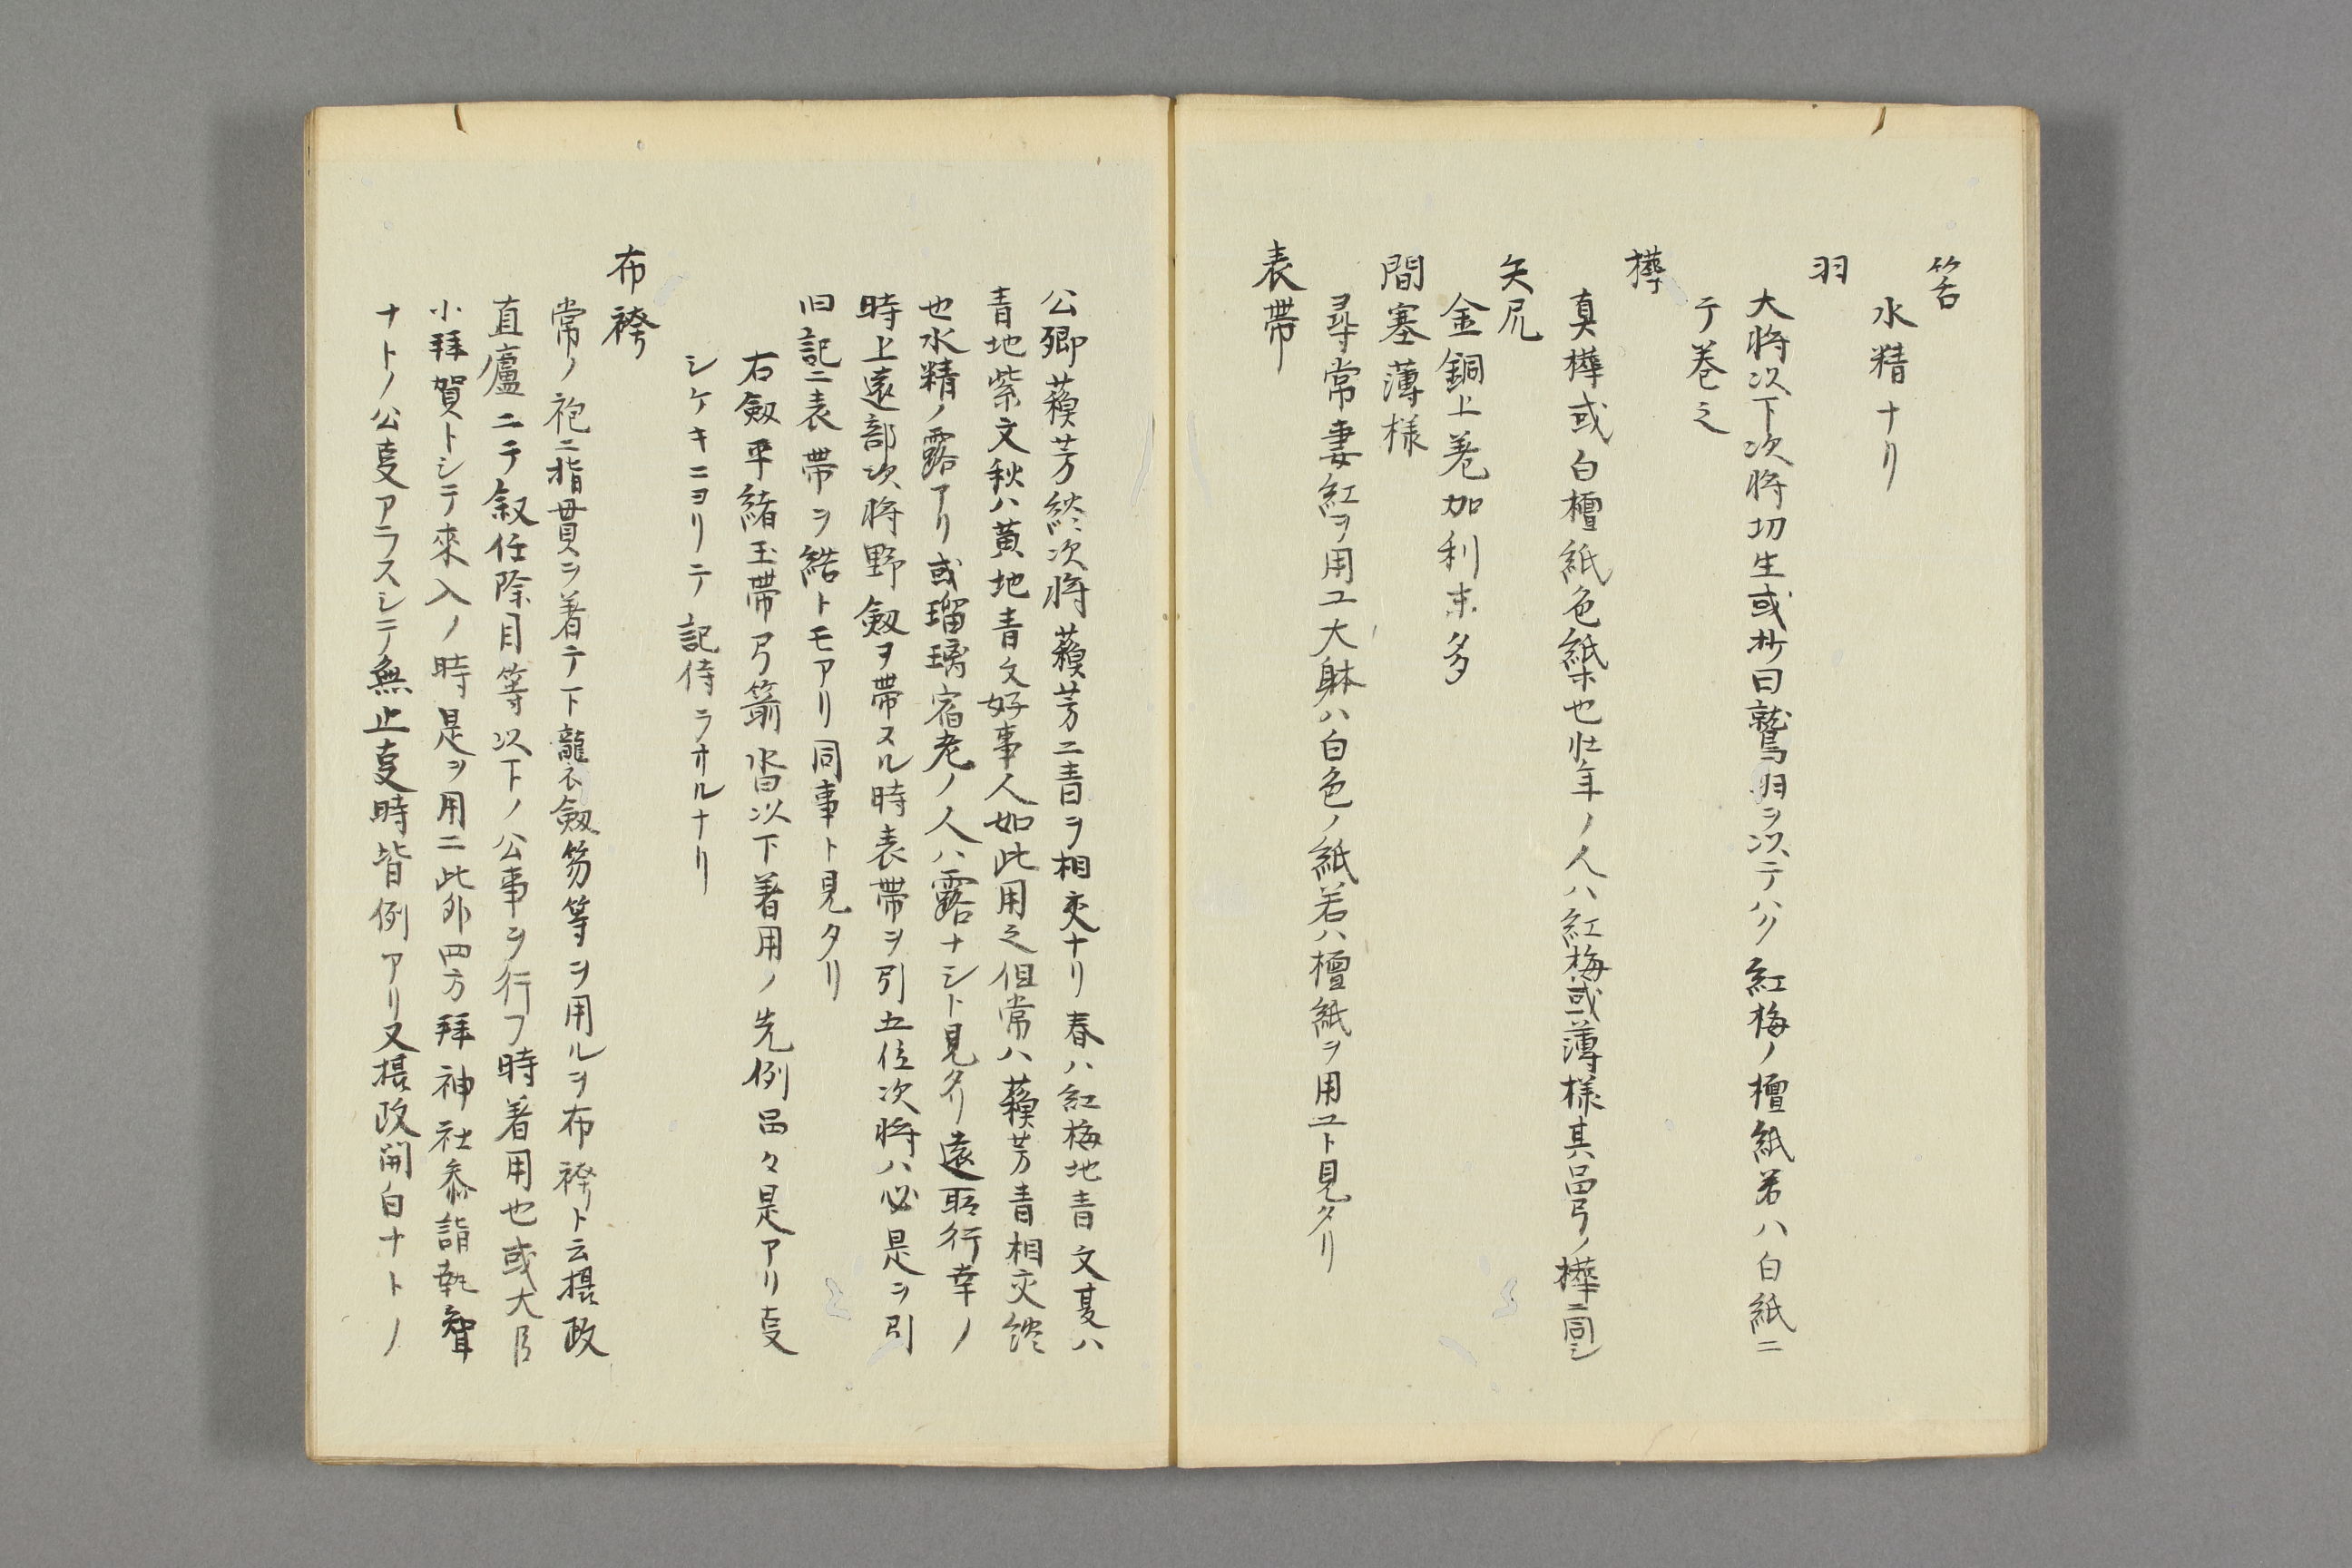 筈
水精ナリ
羽
大将以下次将切生或抄曰鷲羽ヲ以テハク紅梅ノ檀紙若ハ白紙ニ
テ巻之
樺
真樺或白檀紙色紙等也壮年ノ人ハ紅梅或薄様其昌弓ノ樺ニ同シ
矢尻
金銅上巻加利末多
間塞薄様
尋常妻紅ヲ用ユ大躰ハ白色ノ紙若ハ檀紙ヲ用ユト見タリ
表帯
公卿蘓芳緂次将蘓芳ニ青ヲ相交ナリ春ハ紅梅地青文夏ハ
青地紫文秋ハ黄地青文好事人如此用之但常ハ蘓芳青相交緂
也水精ノ露アリ或瑠璃宿老ノ人ハ露ナシト見タリ遠所行幸ノ
時上達部次将野劔ヲ帯スル時表帯ヲ引五位次将ハ必是ヲ引
旧記ニ表帯ヲ結トモアリ同事ト見タリ
右劔平緒玉帯弓箭沓以下着用ノ先例品々是アリ㕝
シケキニヨリテ記侍ラオルナリ
布袴
常ノ袍ニ指貫ヲ着テ下襲衣劔笏等ヲ用ルヲ布袴ト云摂政
直廬ニテ叙任除目等以下ノ公事ヲ行フ時着用也或大臣
小拜賀トシテ來入ノ時是ヲ用ニ此外四方拜神社参詣執聟
ナトノ公㕝アラスシテ無止㕝時皆例アリ又摂政関白ナトノ